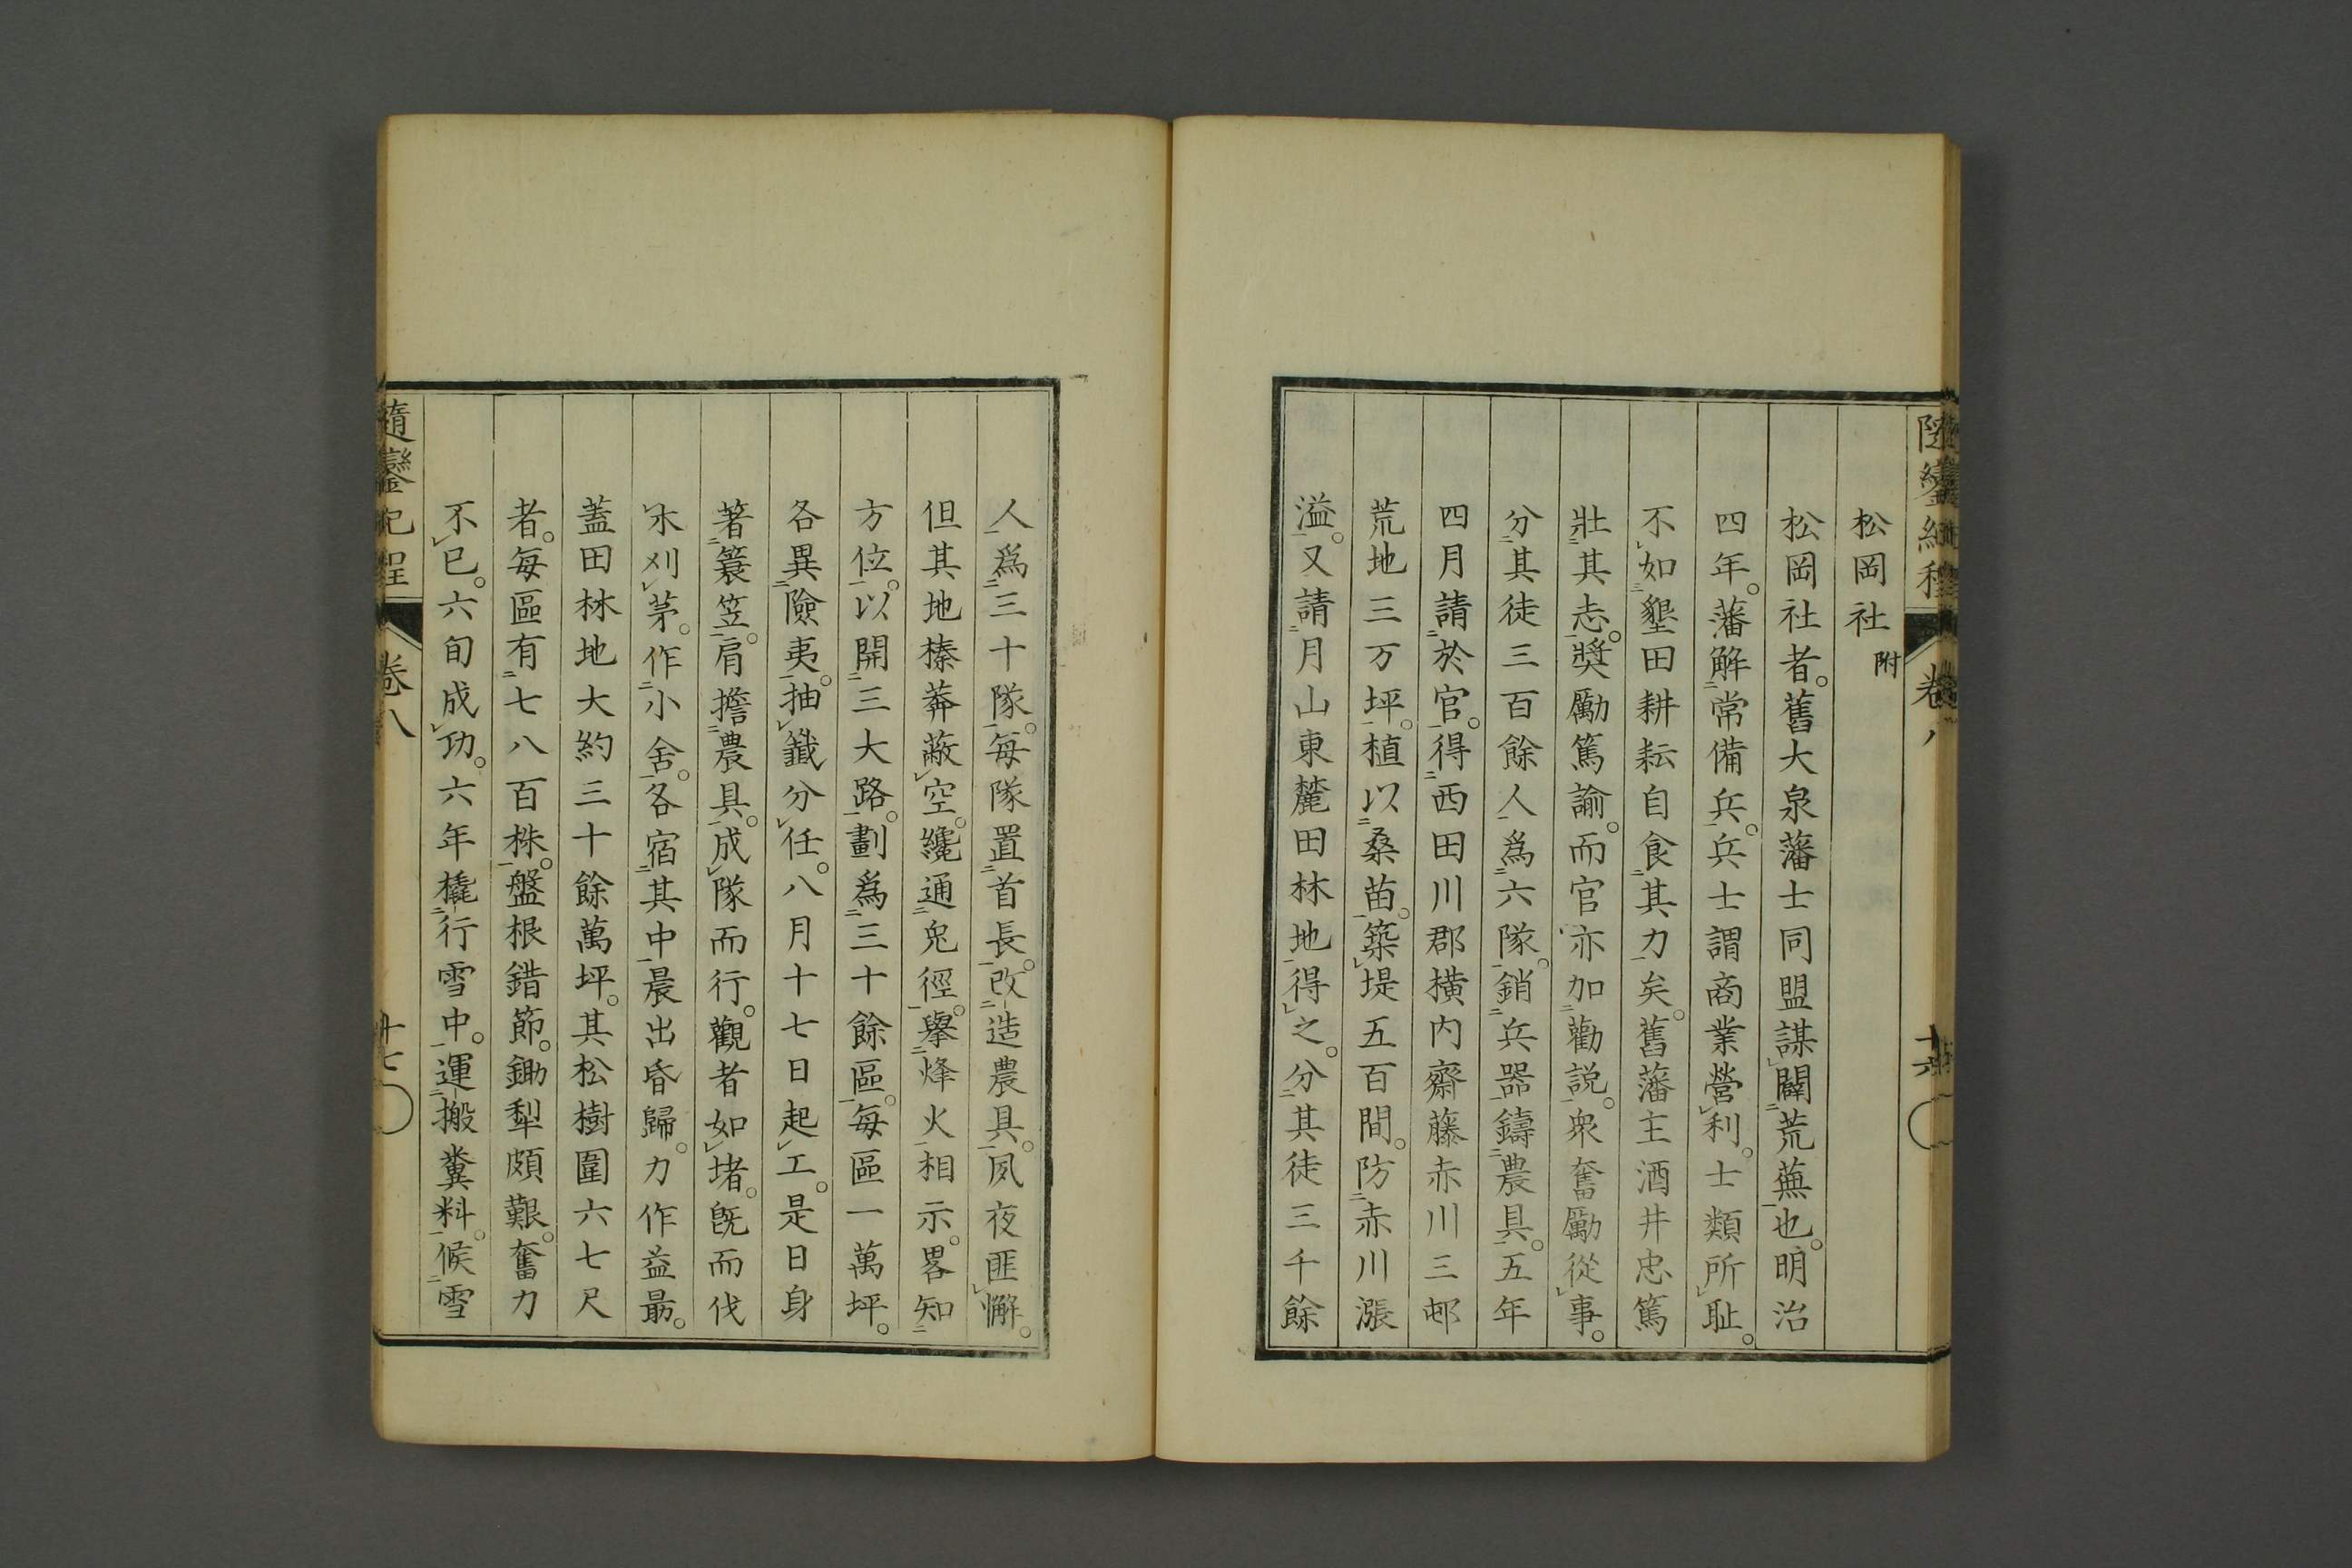 松岡社 附
松岡社者。舊大泉藩士同盟謀闢荒蕪也。明治
四年。藩解常備兵。兵士謂商業營利。士類所耻。
不如墾田耕耘自食其力矣。舊藩主酒井忠篤
壯其志。奬勵篤諭。而官亦加勸説。衆奮勵從事。
分其徒三百餘人爲六隊。銷兵器鑄農具。五年
四月請於官。得西田川郡横内齋藤赤川三邨
荒地三万坪。植以桑苗。築堤五百間。防赤川漲
溢。又請月山東麓田林地得之。分其徒三千餘
人爲三十隊。毎隊置首長。改造農具。夙夜匪懈。
但其地榛莽蔽空。纔通兎徑。擧烽火相示。畧知
方位。以開三大路。劃爲三十餘區。毎區一萬坪。
各異險夷。抽籤分任。八月十七日起工。是日身
著簑笠。肩擔農具。成隊而行。觀者如堵。既而伐
木刈茅。作小舍。各宿其中。晨出昏歸。力作益勗。
蓋田林地大約三十餘萬坪。其松樹圍六七尺
者。毎區有七八百株。盤根錯節。鋤犁頗艱。奮力
不已。六旬成功。六年橇行雪中。運搬糞料。候雪
隨鑾紀程 卷八 十七